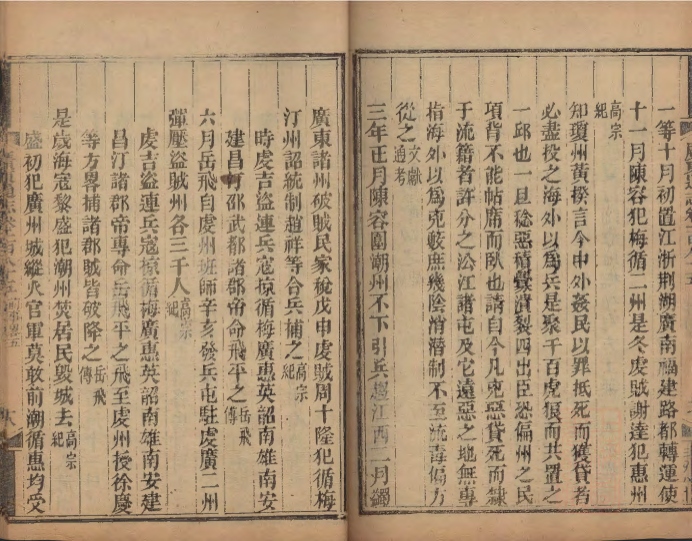 一等十月初置江浙荆湖廣南福建路都轉運使
十一月陳容犯梅循二州是冬虔賊謝達犯惠州
高宗紀
知瓊州黃揆言今中外姦民以罪抵死而獲貸者
必盡投之海外以為兵是聚千百虎狼而共置之
一邱也一旦稔惡積釁潰裂四出臣恐偏州之民
項背不能帖席而臥也請自今凡兇惡貸死而隸
于流籍者許分之㳂江諸屯及它遠惡之地無專
指海外以為兇藪庶幾陰消潛制不至流毒偏方
從之文獻通考
三年正月陳容圍潮州不下引兵趨江西二月蠲
廣東諸州破賊民家稅戊申虔賊周十隆犯循梅
汀州詔統制趙祥等合兵捕之高宗紀
時虔吉盜連兵寇掠循梅廣惠英韶南雄南安
建昌邵武諸郡帝命飛平之岳飛傳
六月岳飛自虔州班師辛亥發兵屯駐虔廣二州
彈壓盜賊州各三千人高宗紀
虔吉盜連兵寇掠循梅廣惠英韶南雄南安建
昌汀諸郡帝專命岳飛平之飛至虔州授徐慶
等方畧捕諸郡賊皆破降之岳飛傳
是歲海寇黎盛犯潮州焚居民毀城去高宗紀
盛初犯廣州城縱火官軍莫敢前潮循惠均受